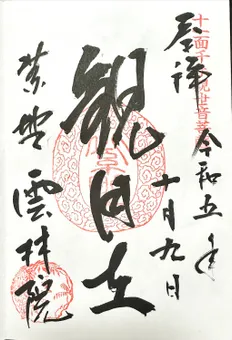 十一面千手観世音菩薩
奉拝 令和五年
十月九日
観自在
紫野 雲林院